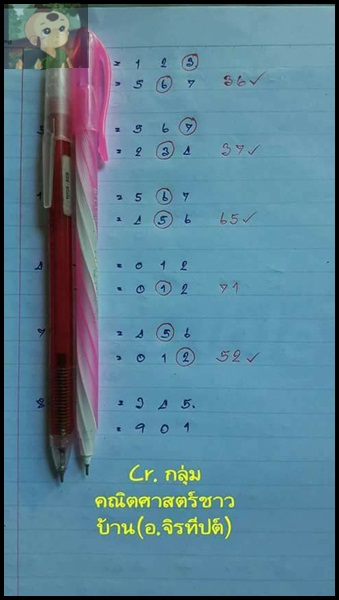 = 1 2 3
= 5 6 7 36 ✓
= 5 6 7
= 2 3 4 37 ✓
= 5 6 7
= 4 5 6 65 ✓
= 0 1 2
= 0 1 2 71
= 4 5 6
= 0 1 2 52 ✓
8 = 3 4 5.
= 9 0 1
Cr. กลุ่ม
คณิตศาสตร์ชาว
บ้าน(อ.จิรทีปต์)